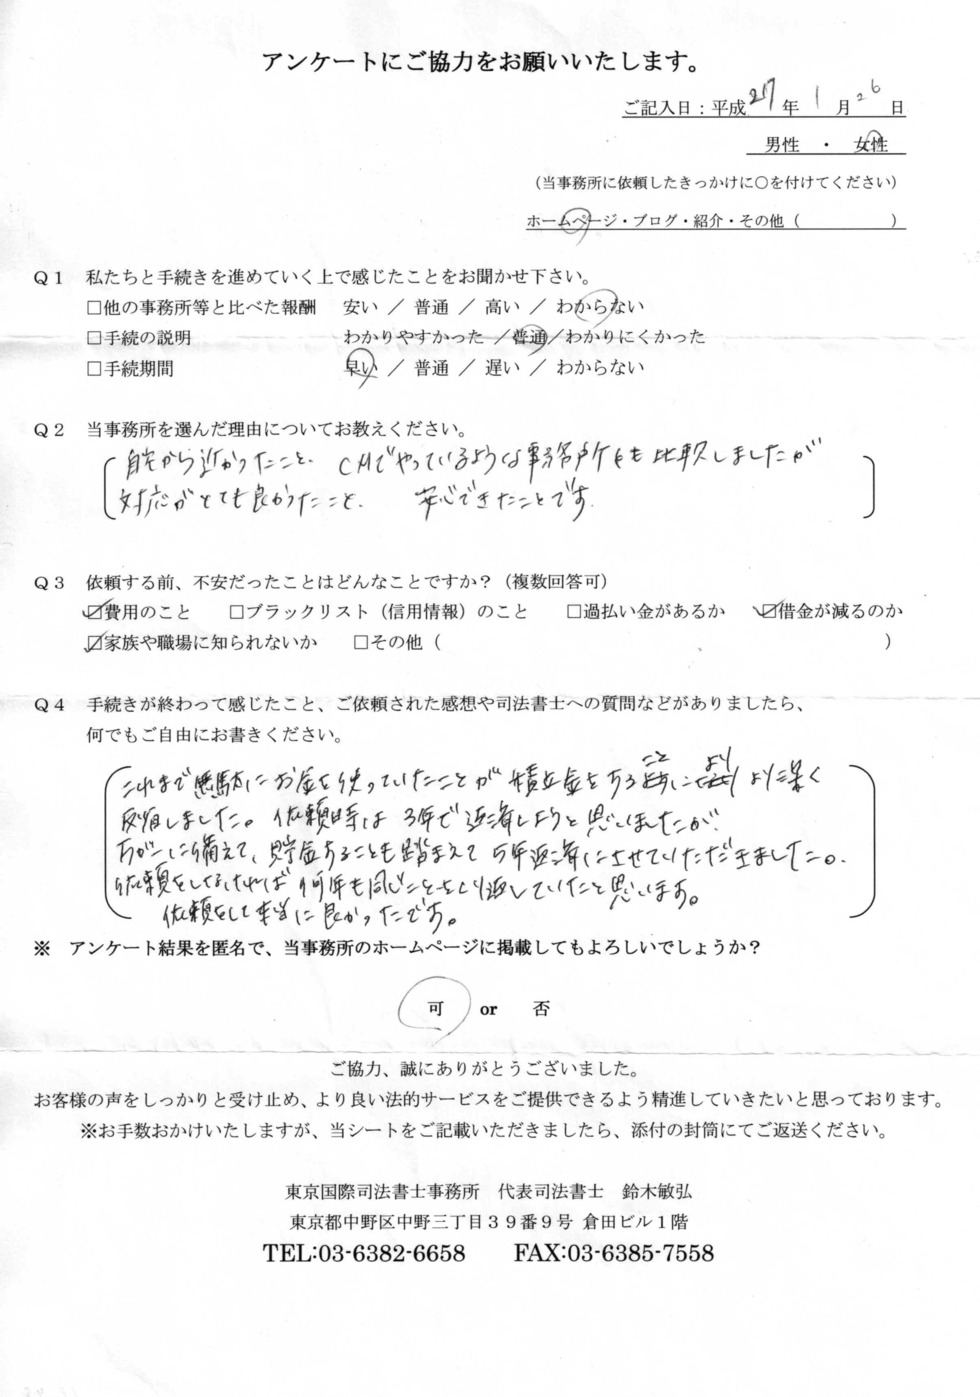 アンケートにご協力をお願いいたします。
ご記入日：平成27年1月26日
男性 ・ 女性
（当事務所に依頼したきっかけに○を付けてください）
ホームページ・ブログ・紹介・その他（　　　　　）
Ｑ１　私たちと手続きを進めていく上で感じたことをお聞かせ下さい。
□他の事務所等と比べた報酬　安い ／ 普通 ／ 高い ／ わからない
□手続の説明　わかりやすかった ／普通／わかりにくかった
□手続期間　早い ／ 普通 ／ 遅い ／ わからない
Ｑ２　当事務所を選んだ理由についてお教えください。
自宅から近かったこと、CMでやっているような事務所とも比較しましたが
対応がとても良かったこと、安心できたことです。
Ｑ３　依頼する前、不安だったことはどんなことですか？（複数回答可）
☑費用のこと　□ブラックリスト（信用情報）のこと　□過払い金があるか　☑借金が減るのか
☑家族や職場に知られないか　□その他（　　　　　）
Ｑ４　手続きが終わって感じたこと、ご依頼された感想や司法書士への質問などがありましたら、
何でもご自由にお書きください。
これまで無駄にお金を使っていたことが積立金をすることにより より深く
反省しました。依頼時は3年で返済しようと思いましたが、
万が一に備えて、貯金することも踏まえて5年返済にさせていただきました。
依頼をしなければ何年も同じことをくり返していたと思います。
依頼をして本当に良かったです。
※　アンケート結果を匿名で、当事務所のホームページに掲載してもよろしいでしょうか？
可 or 否
ご協力、誠にありがとうございました。
お客様の声をしっかりと受け止め、より良い法的サービスをご提供できるよう精進していきたいと思っております。
※お手数おかけいたしますが、当シートをご記載いただきましたら、添付の封筒にてご返送ください。
東京国際司法書士事務所　代表司法書士　鈴木敏弘
東京都中野区中野三丁目３９番９号 倉田ビル１階
TEL:03-6382-6658　FAX:03-6385-7558